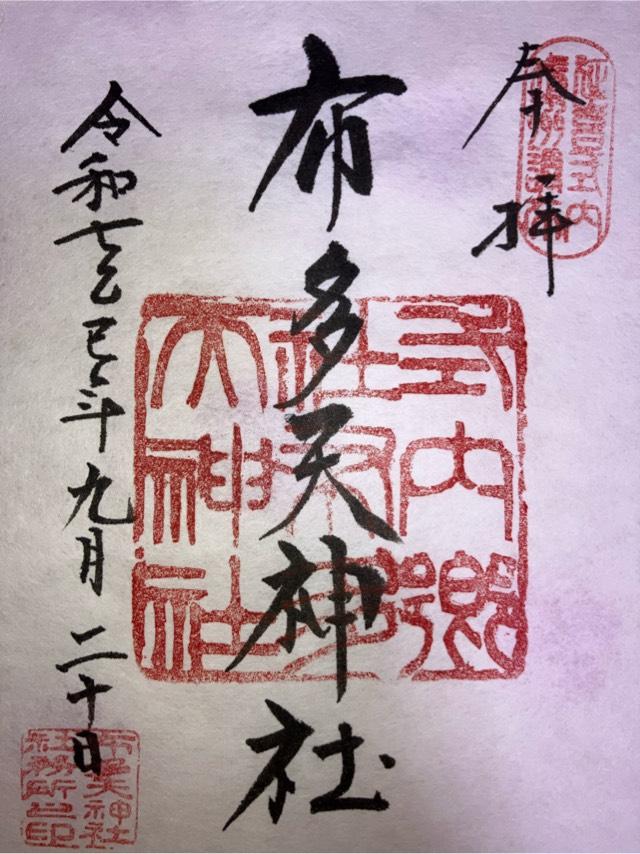 奉拝
布多天神社
令和七乙巳年九月二十日
式内郷社布多天神社
布多天神社社務所之印